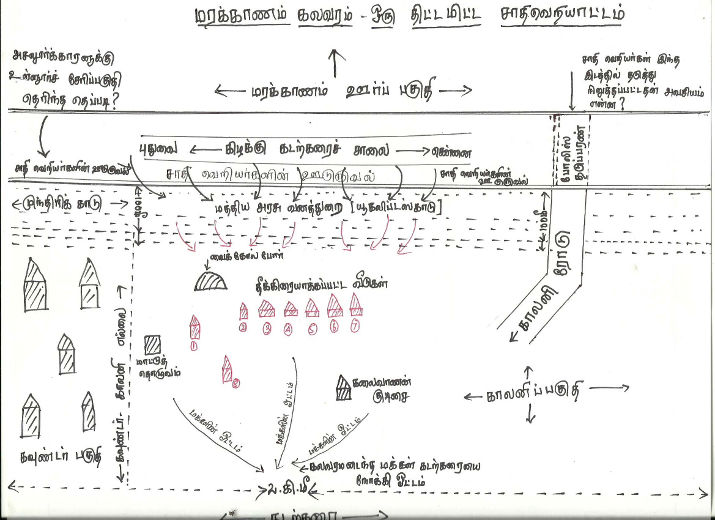 மரக்காணம் கலவரம் - ஒரு திட்டமிட்ட சாதிவெறியாட்டம்
அசலூர்க்காரனுக்கு
உள்ளூர்ச் சேரிப்பகுதி
தெரிந்த தெப்படி?
சாதி வெறியர்கள் இந்த
இடத்தில் தடுத்து
நிறுத்தப்பட்டதன் அவசியம்
என்ன?
மரக்காணம் ஊர்ப் பகுதி
புதுவை
கிழக்கு கடற்கரைச் சாலை
சென்னை
போலிஸ்
தடுப்பரண்
சாதி வெறியர்களின் ஊடுருவல்
சாதி வெறியர்களின் ஊடுருவல்
சாதி வெறியர்களின்
ஊடுருவல்
முந்திரிக் காடு
மத்திய அரசு வனத்துறை [யூகலிப்டஸ்காடு]
வைக்கோல் போர்
தீக்கிரையாக்கப்பட்ட வீடுகள்
காலனி ரோடு
1
2
3
4
5
6
7
மாட்டுத்
தொழுவம்
கலைவாணன்
குடிசை
காலனிப்பகுதி
கவுண்டர் - காலனி எல்லை
மக்களின் ஓட்டம்
மக்களின் ஓட்டம்
மக்களின் ஓட்டம்
கவுண்டர் பகுதி
கலவரமடைந்த மக்கள் கடற்கரையை
நோக்கி ஓட்டம்
2 கி மீ
கடற்கரை